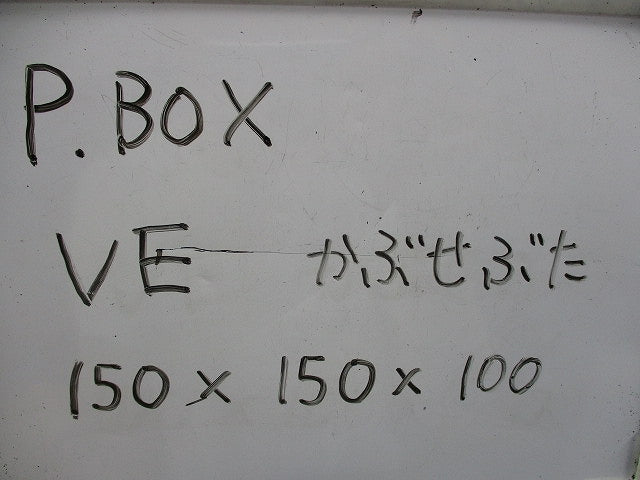 P.BOX
VE かぶせぶた
150×150×100